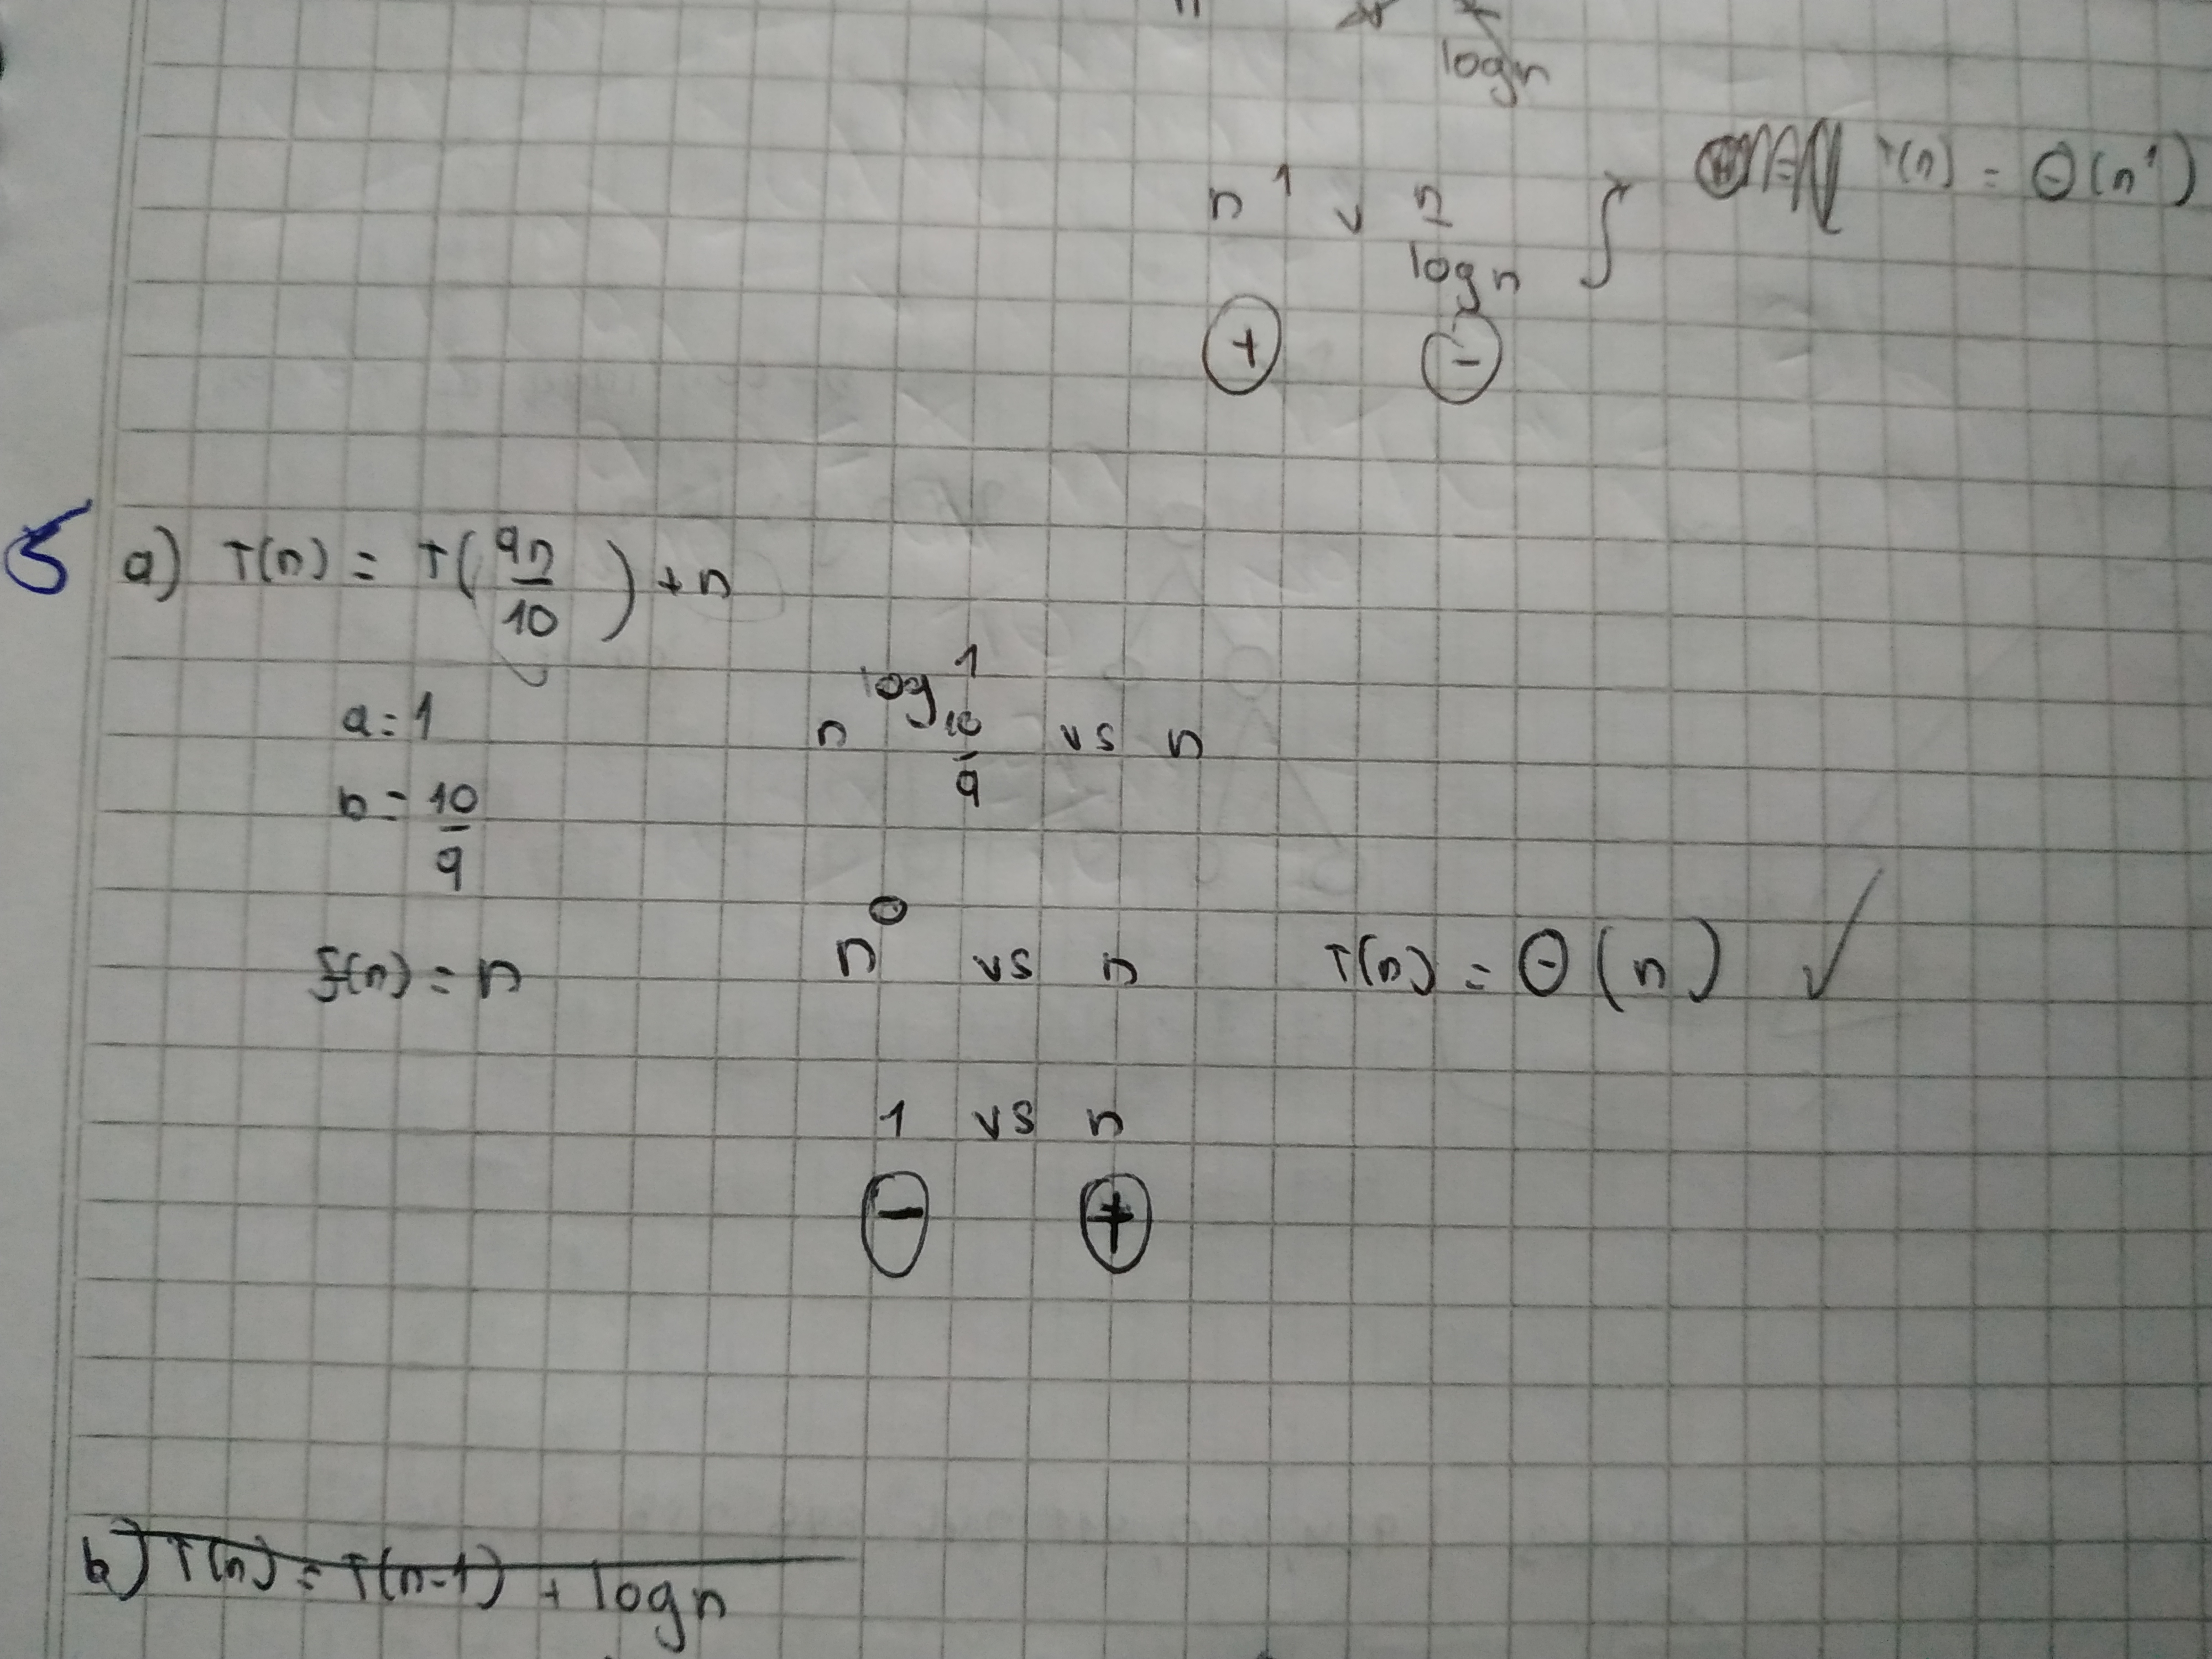 log n
n¹ v n/log n } T(n) = Θ(n¹)
+ -
5 a) T(n) = T(9n/10) + n
a = 1
b = 10/9
n^(log_(10/9) 1) vs n
f(n) = n
n⁰ vs n T(n) = Θ(n) ✓
1 vs n
- +
b) T(n) = T(n-1) + log n